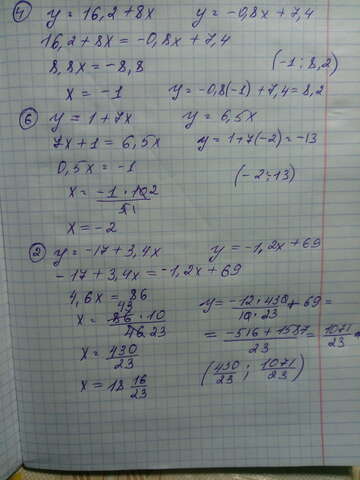 ④ y = 16,2 + 8x    y = -0,8x + 7,4
16,2 + 8x = -0,8x + 7,4
8,8x = -8,8    (-1; 8,2)
x = -1    y = -0,8(-1) + 7,4 = 8,2
⑥ y = 1 + 7x    y = 6,5x
7x + 1 = 6,5x    y = 1 + 7(-2) = -13
0,5x = -1
x = -1·10 2 / 5 1    (-2; 13)
x = -2
② y = -17 + 3,4x    y = -1,2x + 69
-17 + 3,4x = -1,2x + 69
4,6x = 86    y = -12·430 / 10·23 + 69 =
x = 43 86·10 / 46 23    = -516 + 1587 / 23 = 1071 / 23
x = 430 / 23    (430 / 23 ; 1071 / 23)
x = 18 16 / 23